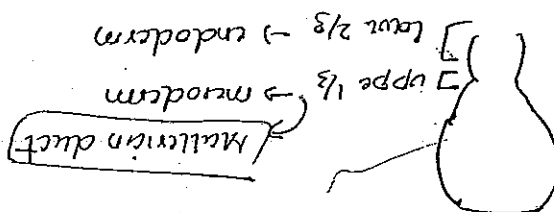 Mullerian duct
uppe 1/3 → mesoderm
lowr 2/3 → endoderm